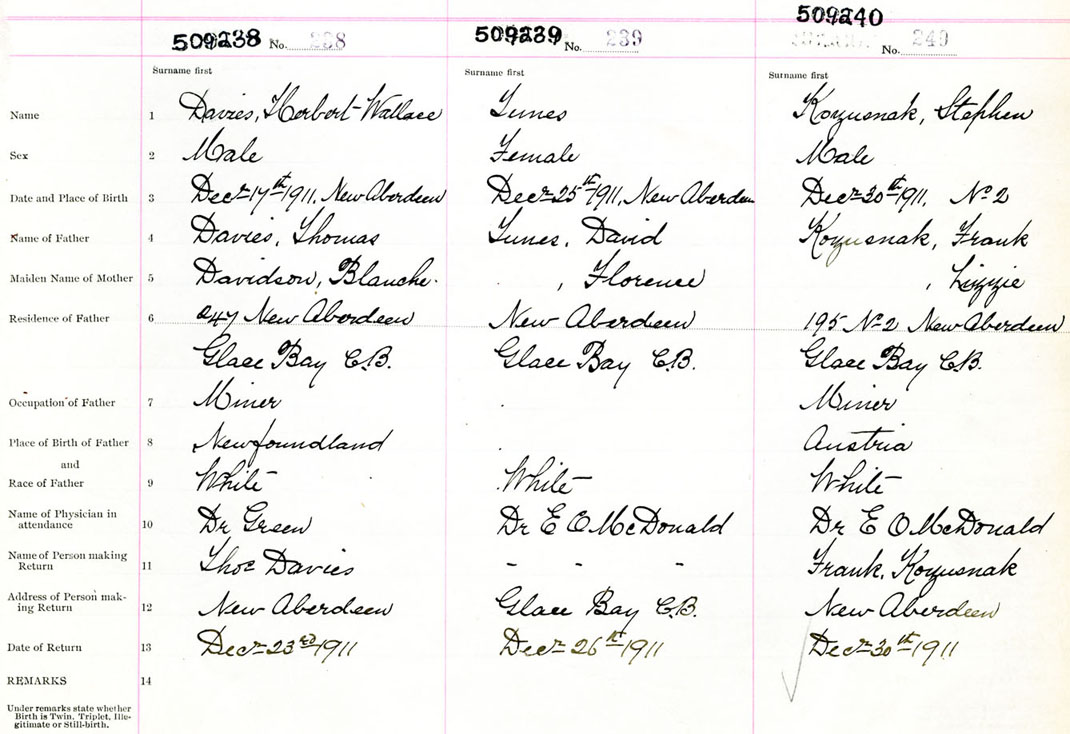 509238 No. 238
509239 No. 239
509240 No. 240
Surname first Surname first Surname first
Name 1 Davies, Herbert Wallace Tunes Kozusnak, Stephen
Sex 2 Male Female Male
Date and Place of Birth 3 Decr 17th 1911, New Aberdeen Decr 25th 1911, New Aberdeen Decr 30th 1911, No 2
Name of Father 4 Davies, Thomas Tunes, David Kozusnak, Frank
Maiden Name of Mother 5 Davidson, Blanche. , Florence , Lizzie
Residence of Father 6 247 New Aberdeen New Aberdeen 195 No 2 New Aberdeen
Glace Bay C.B. Glace Bay C.B. Glace Bay C.B.
Occupation of Father 7 Miner Miner
Place of Birth of Father 8 Newfoundland Austria
and
Race of Father 9 White White White
Name of Physician in
attendance 10 Dr Green Dr E O McDonald Dr E O McDonald
Name of Person making
Return 11 Thos Davies - - - Frank, Kozusnak
Address of Person mak-
ing Return 12 New Aberdeen Glace Bay C.B. New Aberdeen
Date of Return 13 Decr 23rd 1911 Decr 26th 1911 Decr 30th 1911
REMARKS 14
Under remarks state whether
Birth is Twin, Triplet, Ille-
gitimate or Still-birth.